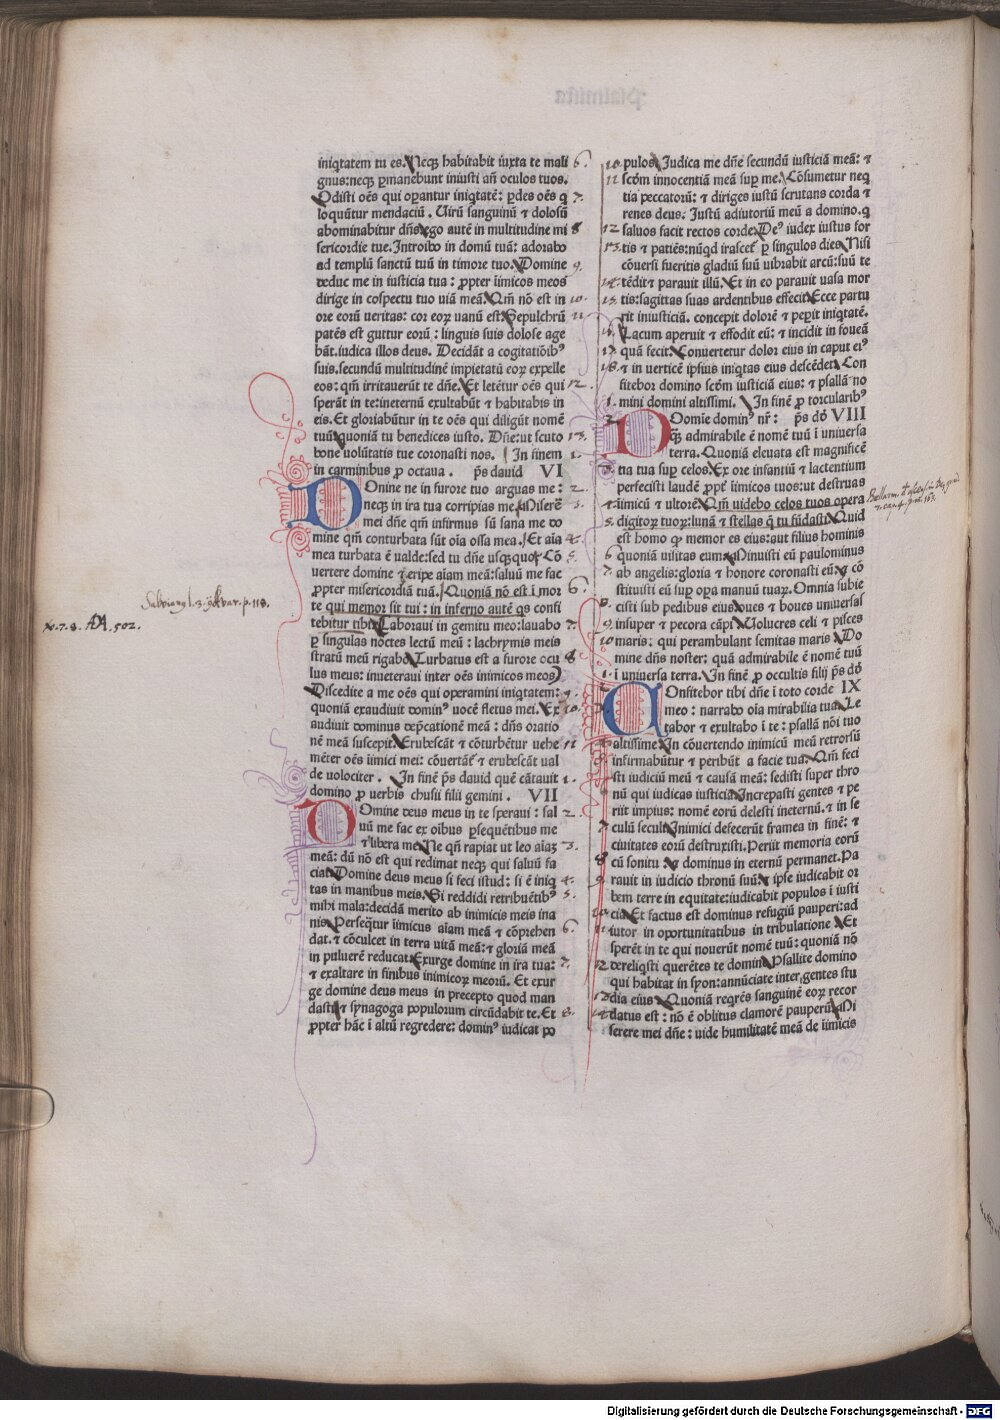 iniqtatem tu es. Necqꝫ habitabit iuxta te mali
gnus: neqꝫ ꝑmanebunt iniusti añ oculos tuos.
Odisti oēs qui oꝑantur iniqtatē: ꝑdes oēs q
loquūtur mendaciū. Uirū sanguinū ⁊ dolosū
abominabitur dñs ego autē in multitudine mi
sericordie tue. Introibo in domū tuā: adorabo
ad templū sanctū tuū in timore tuo. Domine
deduc me in iusticia tua: ꝓpter iimicos meos
dirige in cospectu tuo uiā meā. Qm̄ nō est in
ore eorū ueritas: cor eoꝝ uanū est. Sepulchrū
patēs est guttur eorū: linguis suis dolose age
bāt. iudica illos deus. Decidāt a cogitatiōibꝰ
suis. secundū multitudinē impietatū eoꝝ expelle
eos: qm̄ irritauerūt te dñe. Et letētur oēs qui
sperāt in te: ineternū exultabūt ⁊ habitabis in
eis. Et gloriabūtur in te oēs qui diligūt nomē
tuū quoniā tu benedices iusto. Dñe: ut scuto
bone uolūtatis tue coronasti nos. In finem
in carminibus ꝓ octaua. ps̄ dauid VI
Domine ne in furore tuo arguas me:
neqꝫ in ira tua corripias me. Miserē
mei dñe qm̄ infirmus sū sana me do
mine qm̄ conturbata sūt oīa ossa mea. Et aīa
mea turbata ē ualde: sed tu dñe usqꝫquo Cō
uertere domine ⁊ eripe aīam meā: saluū me fac
ꝓpter misericordiā tuā. Quoniā nō est ī mor
te qui memor sit tui: in inferno autē qs confi
tebitur tibi Laboraui in gemitu meo: lauabo
ꝑ singulas noctes lectū meū: lachrymis meis
stratū meū rigabo Turbatus est a furore ocu
lus meus: inueteraui inter oēs inimicos meos
Discedite a me oēs qui operamini iniqtatem:
quoniā exaudiuit dominꝰ uocē fletus mei. Ex
audiuit dominus deꝓcationē meā: dñs oratio
nē meā suscepit. Erubescāt ⁊ cōturbētur uehe
mēter oēs iimici mei: cōuertāt ⁊ erubescāt ual
de uelociter. In finē ps̄ dauid quē cātauit
domino ꝓ uerbis chusii filii gemini. VII
Domine deus meus in te speraui: sal
uū me fac ex oībus ꝑsequētibus me
⁊ libera me Ne qn̄ rapiat ut leo aīaꝫ
meā: dū nō est qui redimat neqꝫ qui saluū fa
ciat Domine deus meus si feci istud: si ē iniq
tas in manibus meis. Si reddidi retribuētibꝰ
mihi mala: decidā merito ab inimicis meis ina
nis. Persequetur iimicus aīam meā ⁊ cōprehen
dat. ⁊ cōculcet in terra uitā meā: ⁊ gloriā meā
in puluerē reducat Exurge domine in ira tua:
⁊ exaltare in finibus inimicoꝝ meorū. Et exur
ge domine deus meus in precepto quod man
dasti ⁊ synagoga populorum circūdabit te. Et
ꝓpter hāc ī altū regredere: dominꝰ iudicat po
pulos Iudica me dñe secundū iusticiā meā: ⁊
scđm innocentiā meā sup me. Cōsumetur neq
tia peccatorū: ⁊ diriges iustū scrutans corda ⁊
renes deus. Iustū adiutoriū meū a domino. q
saluos facit rectos corde. Deꝰ iudex iustus for
tis ⁊ patiēs: nūqd irascet̄ ꝑ singulos dies Nisi
cōuersi fueritis gladiū suū uibrabit arcū: suū te
tēdit ⁊ parauit illū. Et in eo parauit uasa mor
tis: sagittas suas ardentibus effecit. Ecce partu
rit iniusticiā. concepit dolorē ⁊ peperit iniqtatē.
Lacum aperuit ⁊ effodit eū: ⁊ incidit in foueā
quā fecit. Conuertetur dolor eius in caput eiꝰ
⁊ in uerticē ipsius iniqtas eius descēdet. Con
fitebor domino scđm iusticiā eius: ⁊ psallā no
mini domini altissimi. In finē ꝓ torcularibꝰ
ps̄ dd VIII
Domīe dominꝰ nr̄:
qꝫ admirabile ē nomē tuū ī uniuersa
terra. Quoniā eleuata est magnificē
tia tua sup celos. Ex ore infantiū ⁊ lactentium
perfecisti laudē ꝓpt̄ iimicos tuos: ut destruas
iimicū ⁊ ultorē. Qm̄ uidebo celos tuos opera
digitoꝝ tuoꝝ: lunā ⁊ stellas q̄ tu fūdasti. Quid
est homo qꝫ memor es eius: aut filius hominis
quoniā uisitas eum Minuisti eū paulominus
ab angelis: gloria ⁊ honore coronasti eū: ⁊ cō
stituisti eū sup oꝑa manuū tuaꝝ. Omnia subie
cisti sub pedibus eius oues ⁊ boues uniuersas
insuper ⁊ pecora cāpi Uolucres celi ⁊ pisces
maris: qui perambulant semitas maris Do
mine dñs noster: quā admirabile ē nomē tuū
ī uniuersa terra. In finē ꝓ occultis filij ps̄ dd
Confitebor tibi dñe ī toto corde IX
meo: narrabo oīa mirabilia tua. Le
tabor ⁊ exultabo ī te: psallā nōi tuo
altissime In cōuertendo inimicū meū retrorsū
infirmabūtur ⁊ peribūt a facie tua. Qm̄ feci
sti iudiciū meū ⁊ causā meā: sedisti super thro
nū qui iudicas iusticiā Increpasti gentes ⁊ pe
riit impius: nomē eorū delesti ineternū. ⁊ in se
culū seculi Inimici defecerūt framea in finē: ⁊
ciuitates eorū destruxisti. Periit memoria eorū
cū sonitu: ⁊ dominus in eternū permanet. Pa
rauit in iudicio thronū suū: ⁊ ipse iudicabit or
bem terre in equitate: iudicabit populos ī iusti
cia Et factus est dominus refugiū pauperi: ad
iutor in oportunitatibus in tribulatione Et
sperēt in te qui nouerūt nomē tuū: quoniā nō
dereliqsti querētes te domin Psallite domino
qui habitat in syon: annūciate inter gentes stu
dia eius Quoniā reqrēs sanguinē eoꝝ recor
datus est: nō ē oblitus clamorē pauperū Mi
serere mei dñe: uide humilitatē meā de iimicis
Digitalisierung gefördert durch die Deutsche Forschungsgemeinschaft - DFG